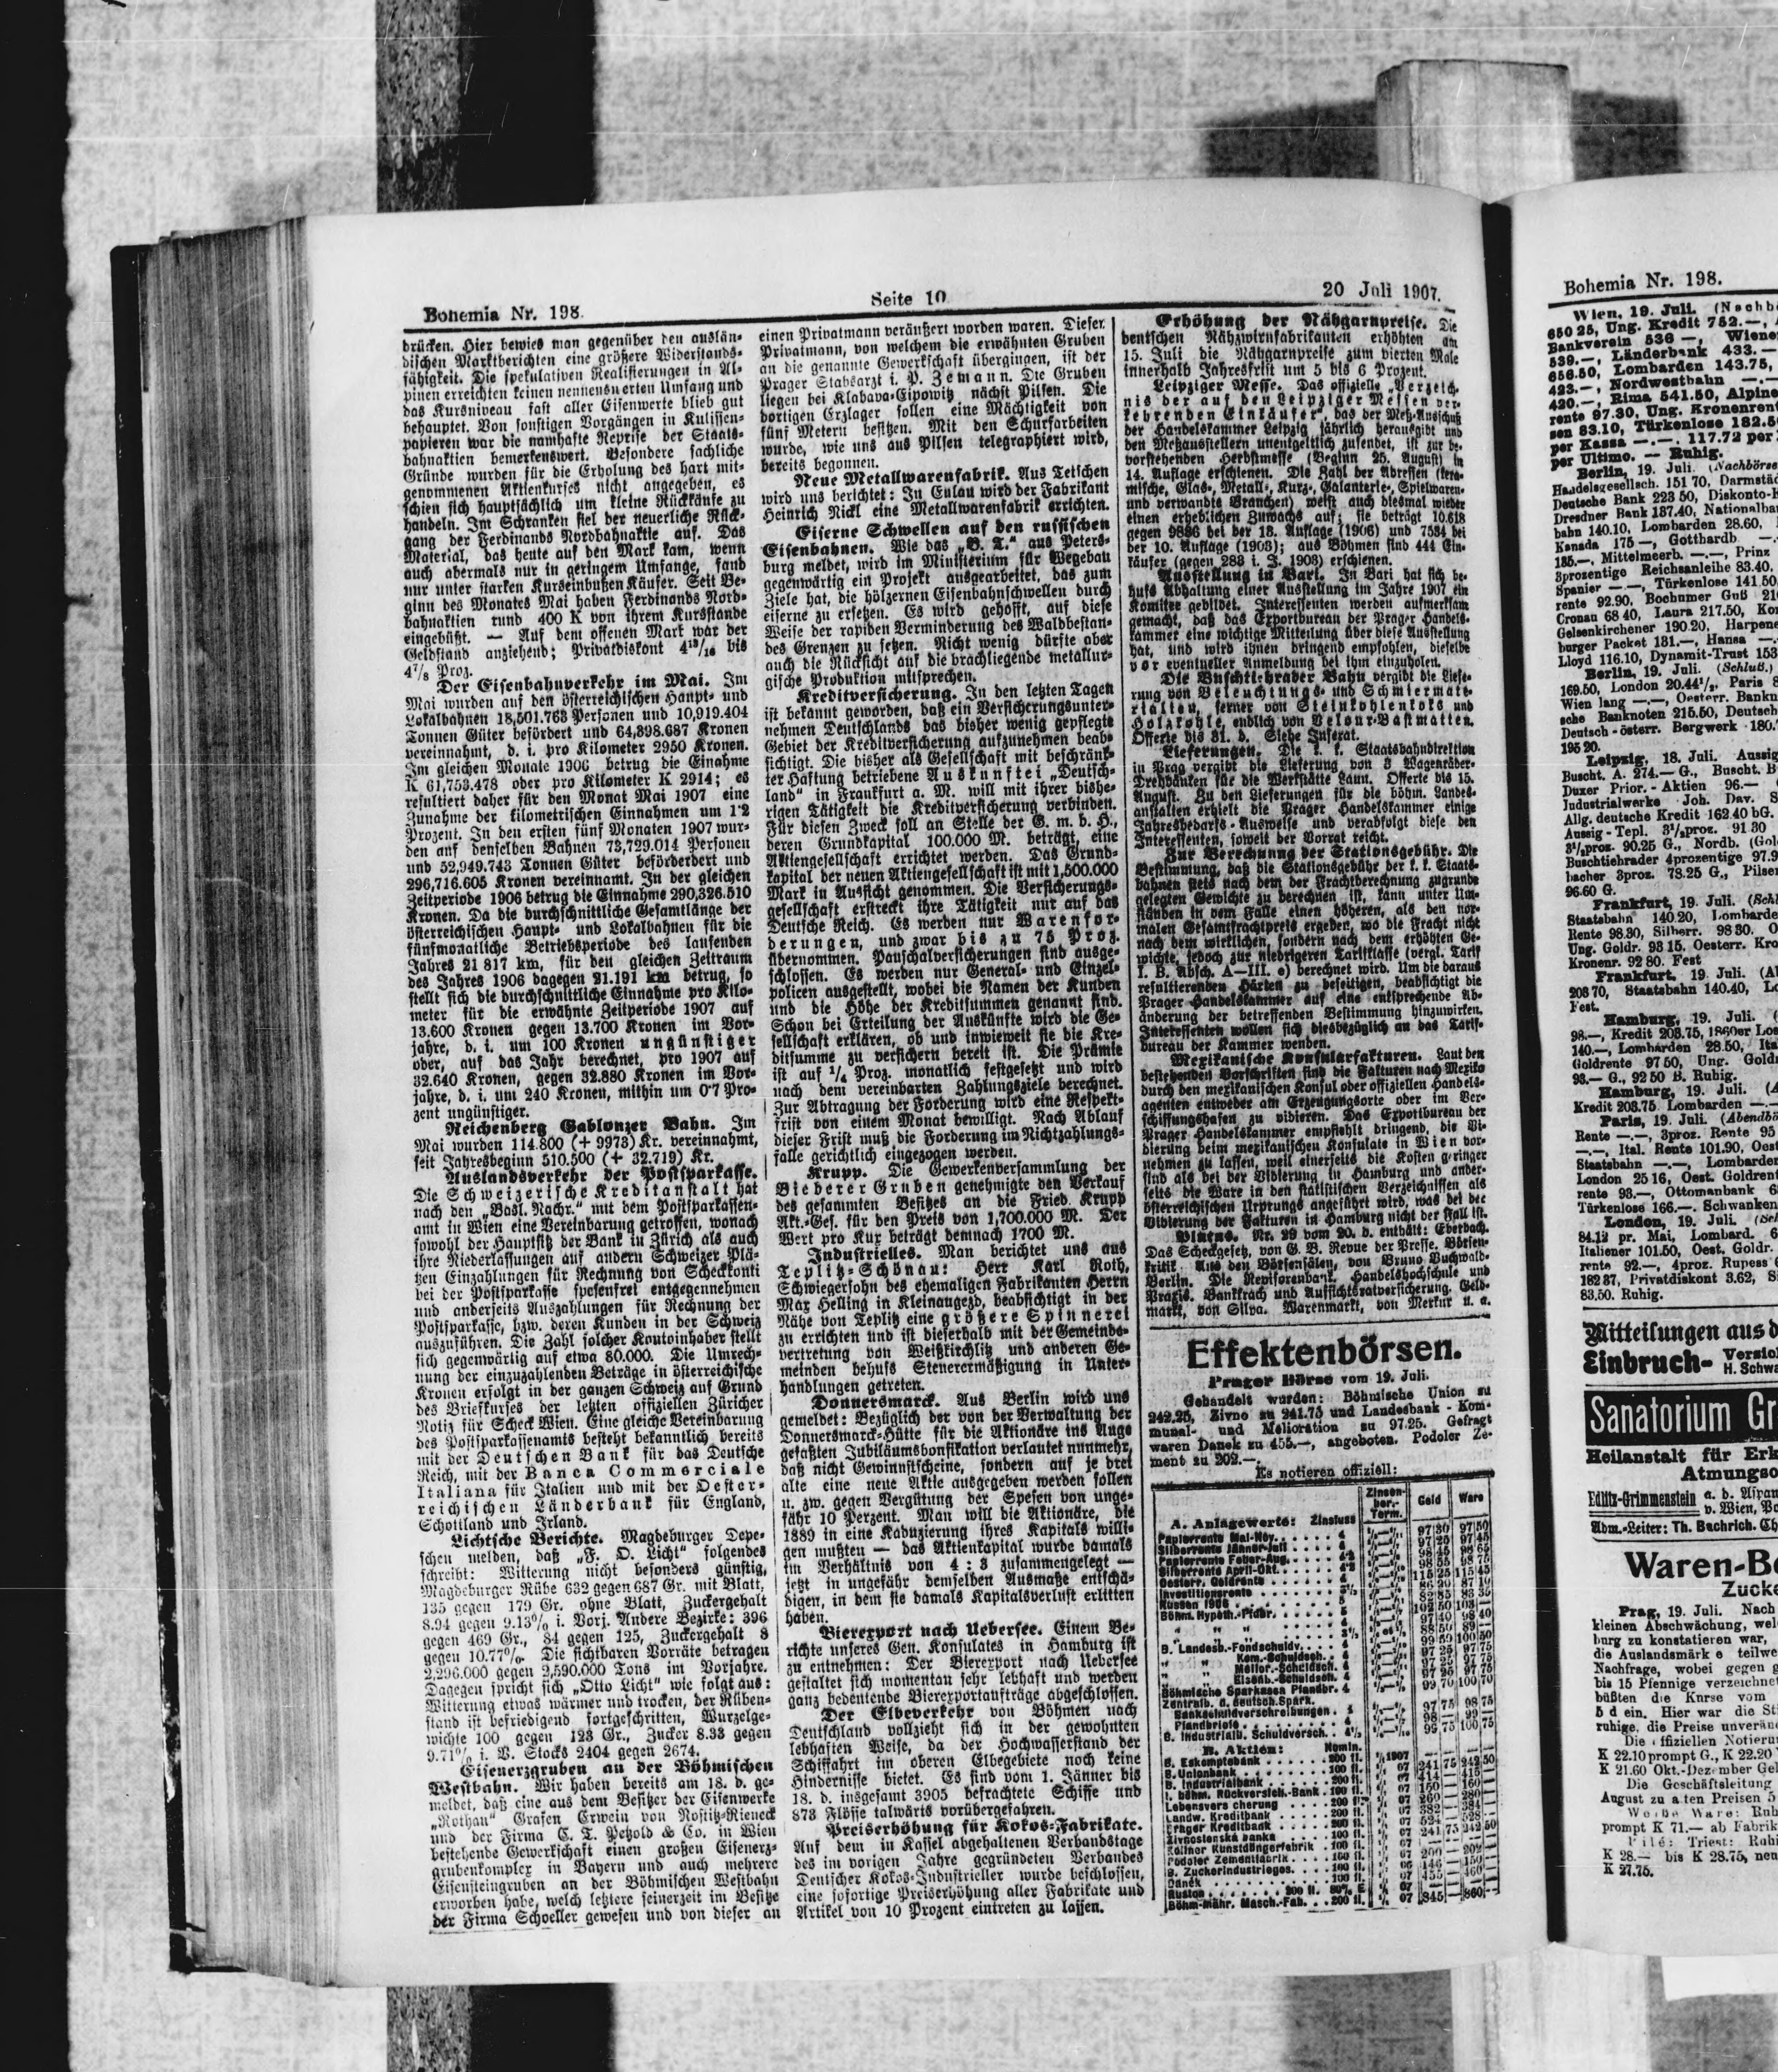 Bohemia Nr. 198.
Seite 10
20 Juli 1907.
drücken. Hier bewies man gegenüber den auslän-
dischen Marktberichten eine größere Widerstands-
fähigkeit. Die spekulativen Realisierungen in Al-
pinen erreichten keinen nennenswerten Umfang und
das Kursniveau fast aller Eisenwerte blieb gut
behauptet. Von sonstigen Vorgängen in Kulissen-
papieren war die namhafte Reprise der Staats-
bahnaktien bemerkenswert. Besondere sachliche
Gründe wurden für die Erholung des hart mit-
genommenen Aktienkurses nicht angegeben, es
schien sich hauptsächlich um kleine Rückkäufe zu
handeln. Im Schranken fiel der neuerliche Rück-
gang der Ferdinands Nordbahnaktie auf. Das
Material, das heute auf den Mark kam, wenn
auch abermals nur in geringem Umfange, fand
nur unter starken Kurseinbußen Käufer. Seit Be-
ginn des Monates Mai haben Ferdinands Nord-
bahnaktien rund 400 K von ihrem Kursstande
eingebüßt. — Auf dem offenen Mark war der
Geldstand anziehend; Privatdiskont 4¹³/₁₆ bis
4⁷/₈ Proz.
Der Eisenbahnverkehr im Mai. Im
Mai wurden auf den österreichischen Haupt- und
Lokalbahnen 18,501.763 Personen und 10,919.404
Tonnen Güter befördert und 64,398.687 Kronen
vereinnahmt, d. i. pro Kilometer 2950 Kronen.
Im gleichen Monate 1906 betrug die Einahme
K 61,753.478 oder pro Kilometer K 2914; es
resultiert daher für den Monat Mai 1907 eine
Zunahme der kilometrischen Einnahmen um 1·2
Prozent. In den ersten fünf Monaten 1907 wur-
den auf denselben Bahnen 73,729.014 Personen
und 52,949.743 Tonnen Güter beförderdert und
296,716.605 Kronen vereinnamt. In der gleichen
Zeitperiode 1906 betrug die Einnahme 290,326.510
Kronen. Da die durchschnittliche Gesamtlänge der
österreichischen Haupt- und Lokalbahnen für die
fünfmonatliche Betriebsperiode des laufenden
Jahres 21 817 km, für den gleichen Zeitraum
des Jahres 1906 dagegen 21.191 km betrug, so
stellt sich die durchschnittliche Einnahme pro Kilo-
meter für die erwähnte Zeitperiode 1907 auf
13.600 Kronen gegen 13.700 Kronen im Vor-
jahre, d. i. um 100 Kronen ungünstiger
oder, auf das Jahr berechnet, pro 1907 auf
32.640 Kronen, gegen 32.880 Kronen im Vor-
jahre, d. i. um 240 Kronen, mithin um 0·7 Pro-
zent ungünstiger.
Reichenberg Gablonzer Bahn. Im
Mai wurden 114.800 (+ 9973) Kr. vereinnahmt,
seit Jahresbeginn 510.500 (+ 32.719) Kr.
Auslandsverkehr der Postsparkasse.
Die Schweizerische Kreditanstalt hat
nach den „Basl. Nachr.“ mit dem Postsparkassen-
amt in Wien eine Vereinbarung getroffen, wonach
sowohl der Hauptsitz der Bank in Zürich als auch
ihre Niederlassungen auf andern Schweizer Plä-
tzen Einzahlungen für Rechnung von Scheckkonti
bei der Postsparkasse spesenfrei entgegennehmen
und anderseits Auszahlungen für Rechnung der
Postsparkasse, bzw. deren Kunden in der Schweiz
auszuführen. Die Zahl solcher Kontoinhaber stellt
sich gegenwärtig auf etwa 80.000. Die Umrech-
nung der einzuzahlenden Beträge in österreichische
Kronen erfolgt in der ganzen Schweiz auf Grund
des Briefkurses der letzten offiziellen Züricher
Notiz für Scheck Wien. Eine gleiche Vereinbarung
des Postsparkassenamts besteht bekanntlich bereits
mit der Deutschen Bank für das Deutsche
Reich, mit der Banca Commerciale
Italiana für Italien und mit der Oester-
reichischen Länderbank für England,
Schottland und Irland.
Lichtsche Berichte. Magdeburger Depe-
schen melden, daß „F. O. Licht“ folgendes
schreibt: Witterung nicht besonders günstig,
Magdeburger Rübe 632 gegen 687 Gr. mit Blatt,
135 gegen 179 Gr. ohne Blatt, Zuckergehalt
8.94 gegen 9.13% i. Vorj. Andere Bezirke: 396
gegen 469 Gr., 84 gegen 125, Zuckergehalt 8
gegen 10.77%. Die sichtbaren Vorräte betragen
2,296.000 gegen 2,590.000 Tons im Vorjahre.
Dagegen spricht sich „Otto Licht“ wie folgt aus:
Witterung etwas wärmer und trocken, der Rüben-
stand ist befriedigend fortgeschritten, Wurzelge-
wichte 100 gegen 123 Gr., Zucker 8.33 gegen
9.71% i. V. Stocks 2404 gegen 2674.
Eisenerzgruben an der Böhmischen
Westbahn. Wir haben bereits am 18. d. ge-
meldet, daß eine aus dem Besitzer der Eisenwerke
„Rothau“ Grafen Erwein von Nostitz-Rieneck
und der Firma C. T. Petzold & Co. in Wien
bestehende Gewerkschaft einen großen Eisenerz-
grubenkomplex in Bayern und auch mehrere
Eisensteingruben an der Böhmischen Westbahn
erworben habe, welch letztere seinerzeit im Besitze
der Firma Schoeller gewesen und von dieser an
einen Privatmann veräußert worden waren. Dieser
Privatmann, von welchem die erwähnten Gruben
an die genannte Gewerkschaft übergingen, ist der
Prager Stabsarzt i. P. Zemann. Die Gruben
liegen bei Klabava-Eipowitz nächst Pilsen. Die
dortigen Erzlager sollen eine Mächtigkeit von
fünf Metern besitzen. Mit den Schurfarbeiten
wurde, wie uns aus Pilsen telegraphiert wird,
bereits begonnen.
Neue Metallwarenfabrik. Aus Tetschen
wird uns berichtet: In Eulau wird der Fabrikant
Heinrich Nickl eine Metallwarenfabrik errichten.
Eiserne Schwellen auf den russischen
Eisenbahnen. Wie das „B. T.“ aus Peters-
burg meldet, wird im Ministerium für Wegebau
gegenwärtig ein Projekt ausgearbeitet, das zum
Ziele hat, die hölzernen Eisenbahnschwellen durch
eiserne zu ersetzen. Es wird gehofft, auf diese
Weise der rapiden Verminderung des Waldbestan-
des Grenzen zu setzen. Nicht wenig dürfte aber
auch die Rücksicht auf die brachliegende metallur-
gische Produktion mitsprechen.
Kreditversicherung. In den letzten Tagen
ist bekannt geworden, daß ein Versicherungsunter-
nehmen Deutschlands das bisher wenig gepflegte
Gebiet der Kreditversicherung aufzunehmen beab-
sichtigt. Die bisher als Gesellschaft mit beschränk-
ter Haftung betriebene Auskunftei „Deutsch-
land“ in Frankfurt a. M. will mit ihrer bishe-
rigen Tätigkeit die Kreditversicherung verbinden.
Für diesen Zweck soll an Stelle der G. m. b. H.,
deren Grundkapital 100.000 M. beträgt, eine
Aktiengesellschaft errichtet werden. Das Grund-
kapital der neuen Aktiengesellschaft ist mit 1,500.000
Mark in Aussicht genommen. Die Versicherungs-
gesellschaft erstreckt ihre Tätigkeit nur auf das
Deutsche Reich. Es werden nur Warenfor-
derungen, und zwar bis zu 75 Proz.
übernommen. Pauschalversicherungen sind ausge-
schlossen. Es werden nur General- und Einzel-
policen ausgestellt, wobei die Namen der Kunden
und die Höhe der Kreditsummen genannt sind.
Schon bei Erteilung der Auskünfte wird die Ge-
sellschaft erklären, ob und inwieweit sie die Kre-
ditsumme zu versichern bereit ist. Die Prämie
ist auf ¹/₄ Proz. monatlich festgesetzt und wird
nach dem vereinbarten Zahlungsziele berechnet.
Zur Abtragung der Forderung wird eine Respekt-
frist von einem Monat bewilligt. Nach Ablauf
dieser Frist muß die Forderung im Nichtzahlungs-
falle gerichtlich eingezogen werden.
Krupp. Die Gewerkenversammlung der
Biederer Gruben genehmigte den Verkauf
des gesammten Besitzes an die Fried. Krupp
Akt.-Ges. für den Preis von 1,700.000 M. Der
Wert pro Kux beträgt demnach 1700 M.
Industrielles. Man berichtet uns aus
Teplitz-Schönau: Herr Karl Roth,
Schwiegersohn des ehemaligen Fabrikanten Herrn
Max Helling in Kleinaugezd, beabsichtigt in der
Nähe von Teplitz eine größere Spinnerei
zu errichten und ist dieserhalb mit der Gemeinde-
vertretung von Weißkirchlitz und anderen Ge-
meinden behufs Steuerermäßigung in Unter-
handlungen getreten.
Donnersmarck. Aus Berlin wird uns
gemeldet: Bezüglich der von der Verwaltung der
Donnersmarck-Hütte für die Aktionäre ins Auge
gefaßten Jubiläumsbonifikation verlautet nunmehr,
daß nicht Gewinnstscheine, sondern auf je drei
alte eine neue Aktie ausgegeben werden sollen
u. zw. gegen Vergütung der Spesen von unge-
fähr 10 Perzent. Man will die Aktionäre, die
1889 in eine Kaduzierung ihres Kapitals willi-
gen mußten — das Aktienkapital wurde damals
im Verhältnis von 4 : 3 zusammengelegt —
jetzt in ungefähr demselben Ausmaße entschä-
digen, in dem sie damals Kapitalsverlust erlitten
haben.
Bierexport nach Uebersee. Einem Be-
richte unseres Gen. Konsulates in Hamburg ist
zu entnehmen: Der Bierexport nach Uebersee
gestaltet sich momentan sehr lebhaft und werden
ganz bedeutende Bierexportaufträge abgeschlossen.
Der Elbeverkehr von Böhmen nach
Deutschland vollzieht sich in der gewohnten
lebhaften Weise, da der Hochwasserstand der
Schiffahrt im oberen Elbegebiete noch keine
Hindernisse bietet. Es sind vom 1. Jänner bis
18. d. insgesamt 3905 befrachtete Schiffe und
873 Flösse talwärts vorübergefahren.
Preiserhöhung für Kokos-Fabrikate.
Auf dem in Kassel abgehaltenen Verbandstage
des im vorigen Jahre gegründeten Verbandes
Deutscher Kokos-Industrieller wurde beschlossen,
eine sofortige Preiserhöhung aller Fabrikate und
Artikel von 10 Prozent eintreten zu lassen.
Erhöhung der Nähgarnpreise. Die
deutschen Nähzwirnfabrikanten erhöhten am
15. Juli die Nähgarnpreise zum vierten Male
innerhalb Jahresfrist um 5 bis 6 Prozent.
Leipziger Messe. Das offizielle „Verzeich-
nis der auf den Leipziger Messen ver-
kehrenden Einkäufer“, das der Meß-Ausschuß
der Handelskammer Leipzig jährlich herausgibt und
den Meßausstellern unentgeltlich zusendet, ist zur be-
vorstehenden Herbstmesse (Beginn 25. August) in
14. Auflage erschienen. Die Zahl der Adressen (kera-
mische, Glas-, Metall-, Kurz-, Galanterie-, Spielwaren-
und verwandte Branchen) weist auch diesmal wieder
einen erheblichen Zuwachs auf; sie beträgt 10.618
gegen 9886 bei der 13. Auflage (1906) und 7534 bei
der 10. Auflage (1903); aus Böhmen sind 444 Ein-
käufer (gegen 283 i. J. 1903) erschienen.
Ausstellung in Bari. In Bari hat sich be-
hufs Abhaltung einer Ausstellung im Jahre 1907 ein
Komitee gebildet. Interessenten werden aufmerksam
gemacht, daß das Exportbureau der Prager Handels-
kammer eine wichtige Mitteilung über diese Ausstellung
hat, und wird ihnen dringend empfohlen, dieselbe
vor eventueller Anmeldung bei ihm einzuholen.
Die Buschtiehrader Bahn vergibt die Liefe-
rung von Beleuchtungs- und Schmiermate-
rialien, ferner von Steinkohlenkoks und
Holzkohle, endlich von Velour-Bastmatten.
Offerte bis 31. d. Siehe Inserat.
Lieferungen. Die k. k. Staatsbahndirektion
in Prag vergibt die Lieferung von 3 Wagenräder-
Drehbänken für die Werkstätte Laun. Offerte bis 15.
August. Zu den Lieferungen für die böhm. Landes-
anstalten erhielt die Prager Handelskammer einige
Jahresbedarfs-Ausweise und verabfolgt diese den
Interessenten, soweit der Vorrat reicht.
Zur Berechnung der Stationsgebühr. Die
Bestimmung, daß die Stationsgebühr der k. k. Staats-
bahnen stets nach dem der Frachtberechnung zugrunde
gelegten Gewichte zu berechnen ist, kann unter Um-
ständen in dem Falle einen höheren, als den nor-
malen Gesamtfrachtpreis ergeben, wo die Fracht nicht
nach dem wirklichen, sondern nach dem erhöhten Ge-
wichte, jedoch zur niedrigeren Tarifklasse (vergl. Tarif
I. B. Absch. A—III. e) berechnet wird. Um die daraus
resultierenden Härten zu beseitigen, beabsichtigt die
Prager Handelskammer auf eine entsprechende Ab-
änderung der betreffenden Bestimmung hinzuwirken.
Interessenten wollen sich diesbezüglich an das Tarif-
bureau der Kammer wenden.
Mexikanische Konsularfakturen. Laut den
bestehenden Vorschriften sind die Fakturen nach Mexiko
durch den mexikanischen Konsul oder offiziellen Handels-
agenten entweder am Erzeugungsorte oder im Ver-
schiffungshafen zu vidieren. Das Exportbureau der
Prager Handelskammer empfiehlt dringend, die Vi-
dierung beim mexikanischen Konsulate in Wien vor-
nehmen zu lassen, weil einerseits die Kosten geringer
sind als bei der Vidierung in Hamburg und ander-
seits die Ware in den statistischen Verzeichnissen als
österreichischen Urprungs angeführt wird, was bei der
Vidierung der Fakturen in Hamburg nicht der Fall ist.
Plutus. Nr. 29 vom 20. d. enthält: Eberbach.
Das Scheckgesetz, von G. B. Revue der Presse. Börsen-
kritik. Aus den Börsensälen, von Bruno Buchwald-
Berlin. Die Revisorenbank. Handelshochschule und
Praxis. Bankkrach und Aufsichtsratversicherung. Geld-
markt, von Silva. Warenmarkt, von Merkur u. a.
Effektenbörsen.
Prager Börse vom 19. Juli.
Gehandelt wurden: Böhmische Union zu
242.25, Zivno zu 241.75 und Landesbank - Kom-
munal- und Melioration zu 97.25. Gefragt
waren Danek zu 455.—, angeboten. Podoler Ze-
ment zu 202.—.
Es notieren offiziell:
A. Anlagewerte: Zinsfuss
Zinsen-
ber.-
Term.
Geld Ware
Papierrente Mai-Nov. 97 30 97 50
Silberrente Jänner-Juli 97 25 97 45
Papierrente Feber-Aug.
Silberrente April-Okt.
Oesterr. Goldrente 115 25 115 45
Investitionsrente
Russen 1906
Böhm. Hypoth.-Pfdbr.
B. Landesb.-Fondschuldv.
Kom.-Schuldsch. 4
Melior.-Scheldsch. 4
Eisenb.-Schuldsch. 4
Böhmische Sparkassa Pfandbr. 4
Zentralb. d. deutsch. Spark.
Bankschuldverschreibungen
Pfandbriefe
B. Industrialb. Schuldversch.
B. Aktien: Nomin.
B. Eskomptebank 200 fl.
B. Unionbank 100 fl. 241 75 242 50
B. Industrialbank 200 fl.
I. böhm. Rückversich.-Bank 100 fl.
Lebensvers cherung 200 fl.
Landw. Kreditbank 200 fl.
Prager Kreditbank 200 fl.
Zivnostenská banka 100 fl. 241 75 242 50
Koliner Kunstdüngerfabrik 100 fl.
Podoler Zementfabrik 100 fl. 200 — 202 —
B. Zuckerindustrieges. 100 fl. 146 — 150 —
Danék 100 fl. 455 — 460 —
Ruston 200 fl.
Böhm-Mähr. Masch.-Fab. 200 fl. 845 — 860 —
Bohemia Nr. 198.
Wien, 19. Juli. (Nachb
650 25, Ung. Kredit 752.—,
Bankverein 536 —, Wiene
539.—, Länderbank 433.—
656.50, Lombarden 143.75,
423.—, Nordwestbahn —.—
420.—, Rima 541.50, Alpine
rente 97.30, Ung. Kronenren
sen 83.10, Türkenlose 182.5
per Kassa —.—. 117.72 per
per Ultimo. — Ruhig.
Berlin, 19. Juli. (Nachbörse
Handelsgesellsch. 151 70, Darmstäd
Deutsche Bank 223 50, Diskonto-
Dresdner Bank 137.40, Nationalba
bahn 140.10, Lombarden 28.60,
Kanada 175 —, Gotthardb —.
135.—, Mittelmeerb. —.—, Prinz
3prozentige Reichsanleihe 83.40,
Spanier —.—, Türkenlose 141.50
rente 92.90, Bochumer Guß 21
Cronau 68 40, Laura 217.50, Kon
Gelsenkirchener 190.20, Harpene
burger Packet 131.—, Hansa —.
Lloyd 116.10, Dynamit-Trust 153
Berlin, 19. Juli. (Schluß.)
169.50, London 20.44¹/₂, Paris 8
Wien lang —.—, Oesterr. Banku
sche Banknoten 215.50, Deutsch
Deutsch - österr. Bergwerk 180.
195 20.
Leipzig, 18. Juli. Aussig
Buscht. A. 274.— G., Buscht. B
Duxer Prior. - Aktien 96.—
Industrialwerke Joh. Dav. S
Allg. deutsche Kredit 162.40 bG.
Aussig - Tepl. 3¹/₂proz. 91 30
3¹/₂proz. 90.25 G., Nordb. (Gol
Buschtiehrader 4prozentige 97.9
bacher 3proz. 78.25 G., Pilsen
96.60 G.
Frankfurt, 19. Juli. (Schl
Staatsbahn 140.20, Lombarde
Rente 98.30, Silberr. 98 30. O
Ung. Goldr. 93 15. Oesterr. Kro
Kronenr. 92 80. Fest
Frankfurt, 19. Juli. (A
203 70, Staatsbahn 140.40, Lo
Fest.
Hamburg, 19. Juli. (
98.—, Kredit 203.75, 1860er Los
140.—, Lombarden 28.50, Ita
Goldrente 97 50, Ung. Goldr
93.— G., 92 50 B. Ruhig.
Hamburg, 19. Juli. (A
Kredit 203.75 Lombarden —.—
Paris, 19. Juli. (Abendbö
Rente —.—, 3proz. Rente 95
—.—, Ital. Rente 101.90, Oest
Staatsbahn —.—, Lombarden
London 25 16, Oest. Goldrent
rente 98.—, Ottomanbank 6
Türkenlose 166.—. Schwanken
London, 19. Juli. (Sch
84.13 pr. Mai, Lombard. 6
Italiener 101.50, Oest. Goldr.
rente 92.—, 4proz. Rupees 6
182 37, Privatdiskont 3.62, S
83.50. Ruhig.
Mitteilungen aus d
Einbruch- Versic
H. Schwa
Sanatorium Gr
Heilanstalt für Erk
Atmungso
Edlitz-Grimmenstein a. d. Aspan
v. Wien, Po
Adm.-Leiter: Th. Bachrich. Ch
Waren-Bö
Zucke
Prag, 19. Juli. Nach
kleinen Abschwächung, wel
burg zu konstatieren war,
die Auslandsmärk e teilwe
Nachfrage, wobei gegen g
bis 15 Pfennige verzeichnet
büßten die Knrse vom
5 d ein. Hier war die Sti
ruhige, die Preise unverän
Die offiziellen Notierun
K 22.10 prompt G., K 22.20
K 21.60 Okt.-Dezember Gel
Die Geschäftsleitung
August zu a.ten Preisen 5
Weiße Ware: Ruh
prompt K 71.— ab Fabrik
Pilé: Triest: Ruhi
K 28.— bis K 28.75, neu
K 27.75.